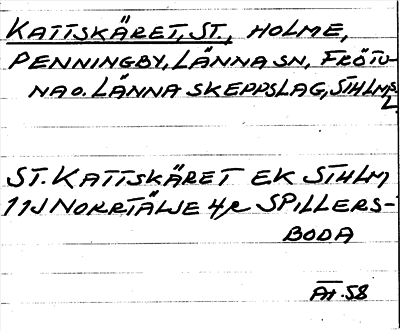 KATTSKÄRET, ST., HOLME,
PENNINGBY, LÄNNA SN, FRÖTU-
NA O. LÄNNA SKEPPSLAG, STHLMS
L.
ST. KATTSKÄRET EK STHLM
11J NORRTÄLJE 4 SPILLERS-
BODA
58